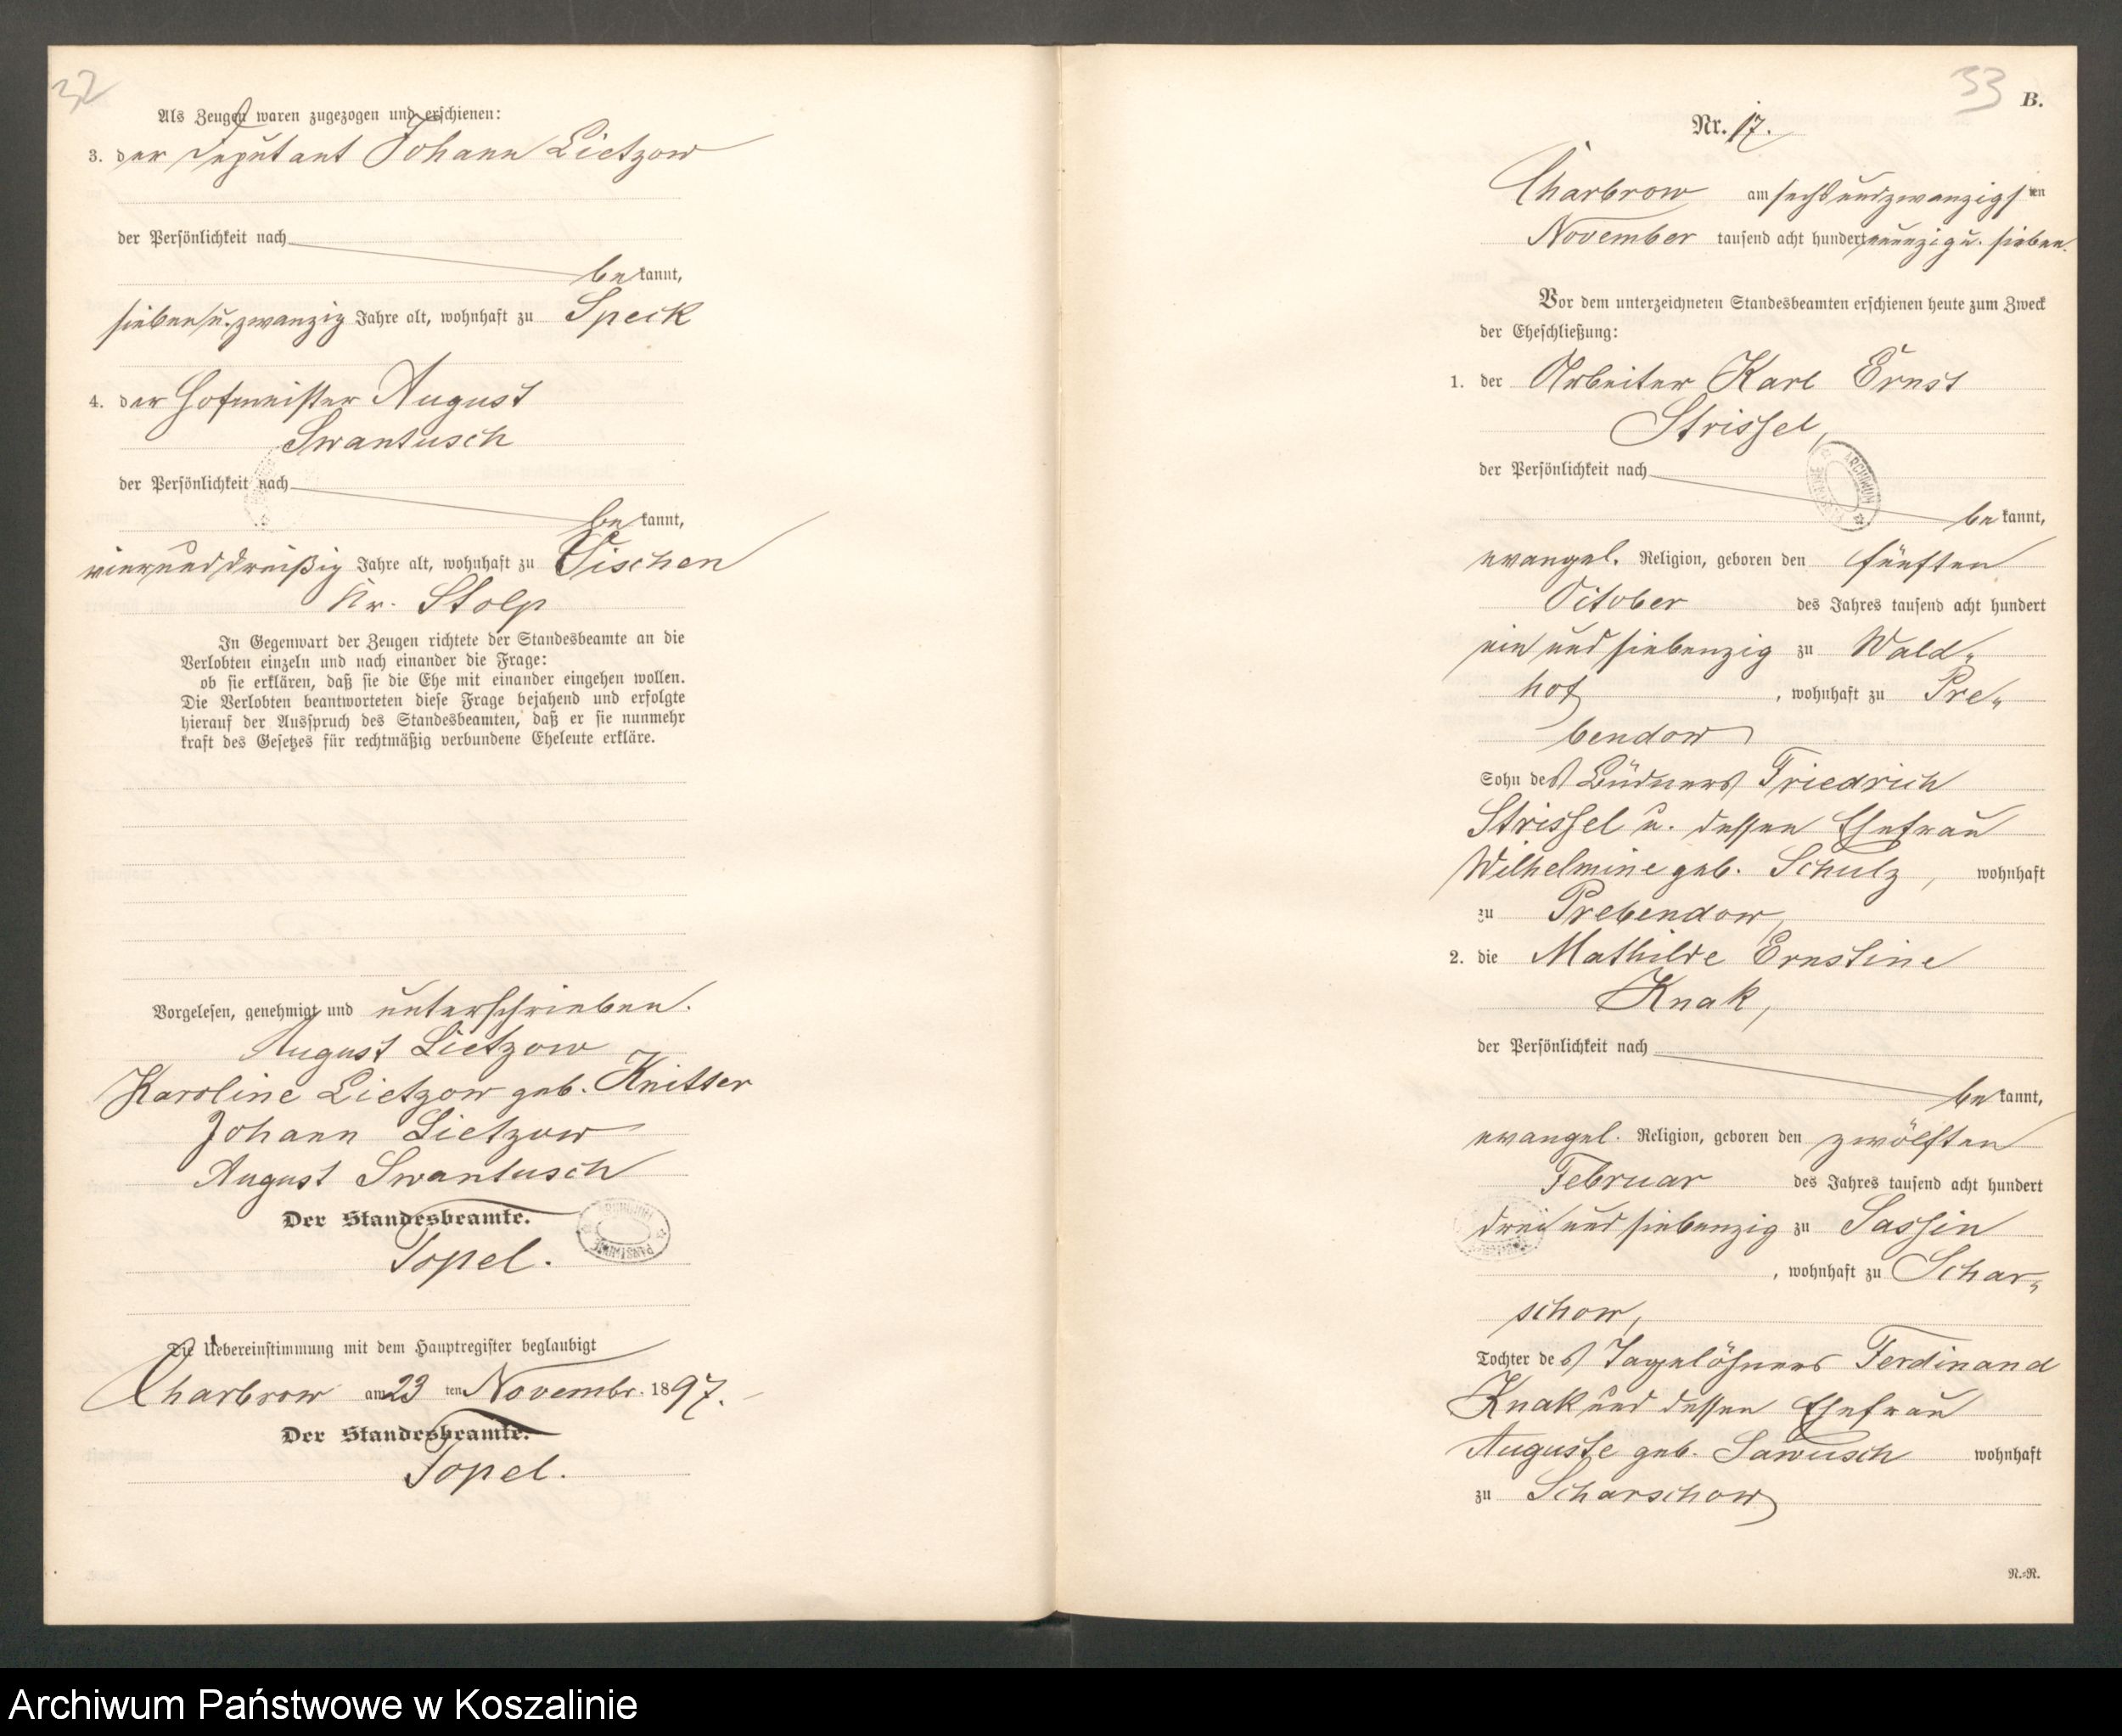 32
Als Zeugen waren zugezogen und erschienen:
3. der Deputant Johann Lietzow
der Persönlichkeit nach
bekannt,
sieben u. zwanzig Jahre alt, wohnhaft zu Speck
4. der Hofmeister August
Swantusch
der Persönlichkeit nach
bekannt,
vierunddreißig Jahre alt, wohnhaft zu Vischen
Kr. Stolp
In Gegenwart der Zeugen richtete der Standesbeamte an die
Verlobten einzeln und nach einander die Frage:
ob sie erklären, daß sie die Ehe mit einander eingehen wollen.
Die Verlobten beantworteten diese Frage bejahend und erfolgte
hierauf der Ausspruch des Standesbeamten, daß er sie nunmehr
kraft des Gesetzes für rechtmäßig verbundene Eheleute erkläre.
Vorgelesen, genehmigt und unterschrieben.
August Lietzow
Karoline Lietzow geb. Knitter
Johann Lietzow
August Swantusch
Der Standesbeamte.
Topel.
Die Uebereinstimmung mit dem Hauptregister beglaubigt
Charbrow am 23 ten Novembr. 1897.
Der Standesbeamte.
Topel.
33
B.
Nr. 17.
Charbrow am sechsundzwanzigsten
November tausend acht hundert neunzig u. sieben.
Vor dem unterzeichneten Standesbeamten erschienen heute zum Zweck
der Eheschließung:
1. der Arbeiter Karl Ernst
Strissel,
der Persönlichkeit nach
bekannt,
evangel. Religion, geboren den fünften
October des Jahres tausend acht hundert
ein und siebenzig zu Wald-
hof, wohnhaft zu Pre-
bendow
Sohn des Büdners Friedrich
Strissel u. dessen Ehefrau
Wilhelmine geb. Schulz, wohnhaft
zu Prebendow,
2. die Mathilde Ernstine
Knak,
der Persönlichkeit nach
bekannt,
evangel. Religion, geboren den zwölften
Februar des Jahres tausend acht hundert
drei und siebenzig zu Sassin
, wohnhaft zu Schar-
schow,
Tochter des Tagelöhners Ferdinand
Knak und dessen Ehefrau
Auguste geb. Sawusch wohnhaft
zu Scharschow
R.=R.
Archiwum Państwowe w Koszalinie